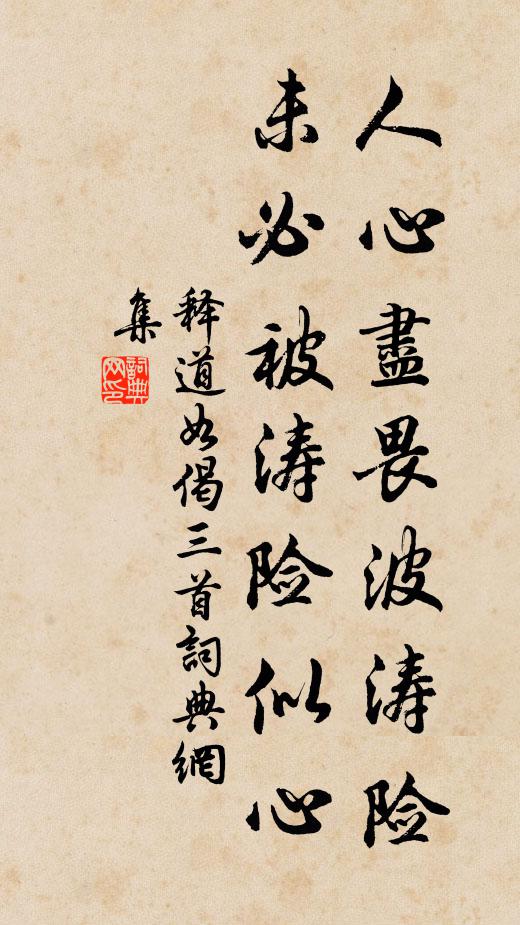 人心盡畏波涛险
未必被涛险似心
释道如偈三首詞典網
集
詞典
网印